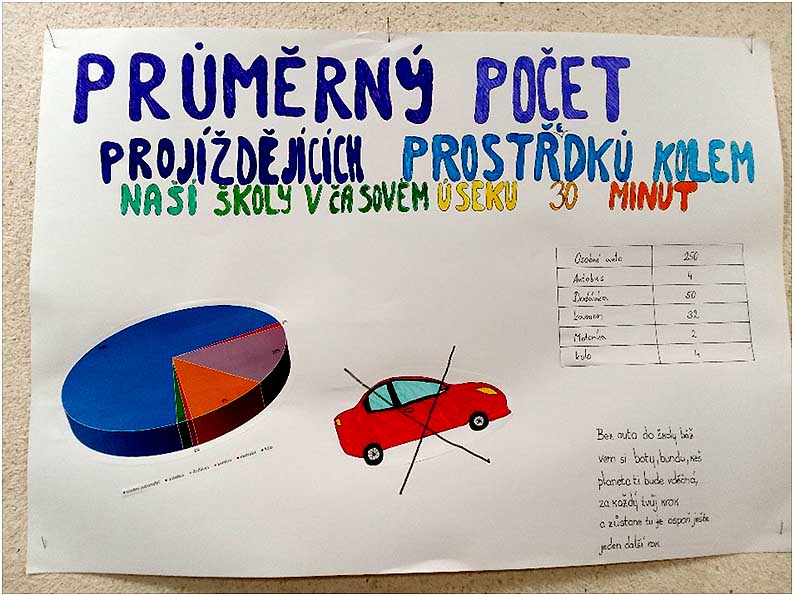 PRŮMĚRNÝ POČET
PROJÍŽDĚJÍCÍCH PROSTŘDKŮ KOLEM
NAŠÍ ŠKOLY V ČASOVÉM ÚSEKU 30 MINUT
Osobní auto 250
Autobus 4
Dodávka 50
kamion 32
Motorka 2
kolo 4
Bez auta do školy běž
vem si boty, bundu, než
planeta ti bude vděčná,
za každý tvůj krok
a zůstane tu je aspoň ještě
jeden další rok